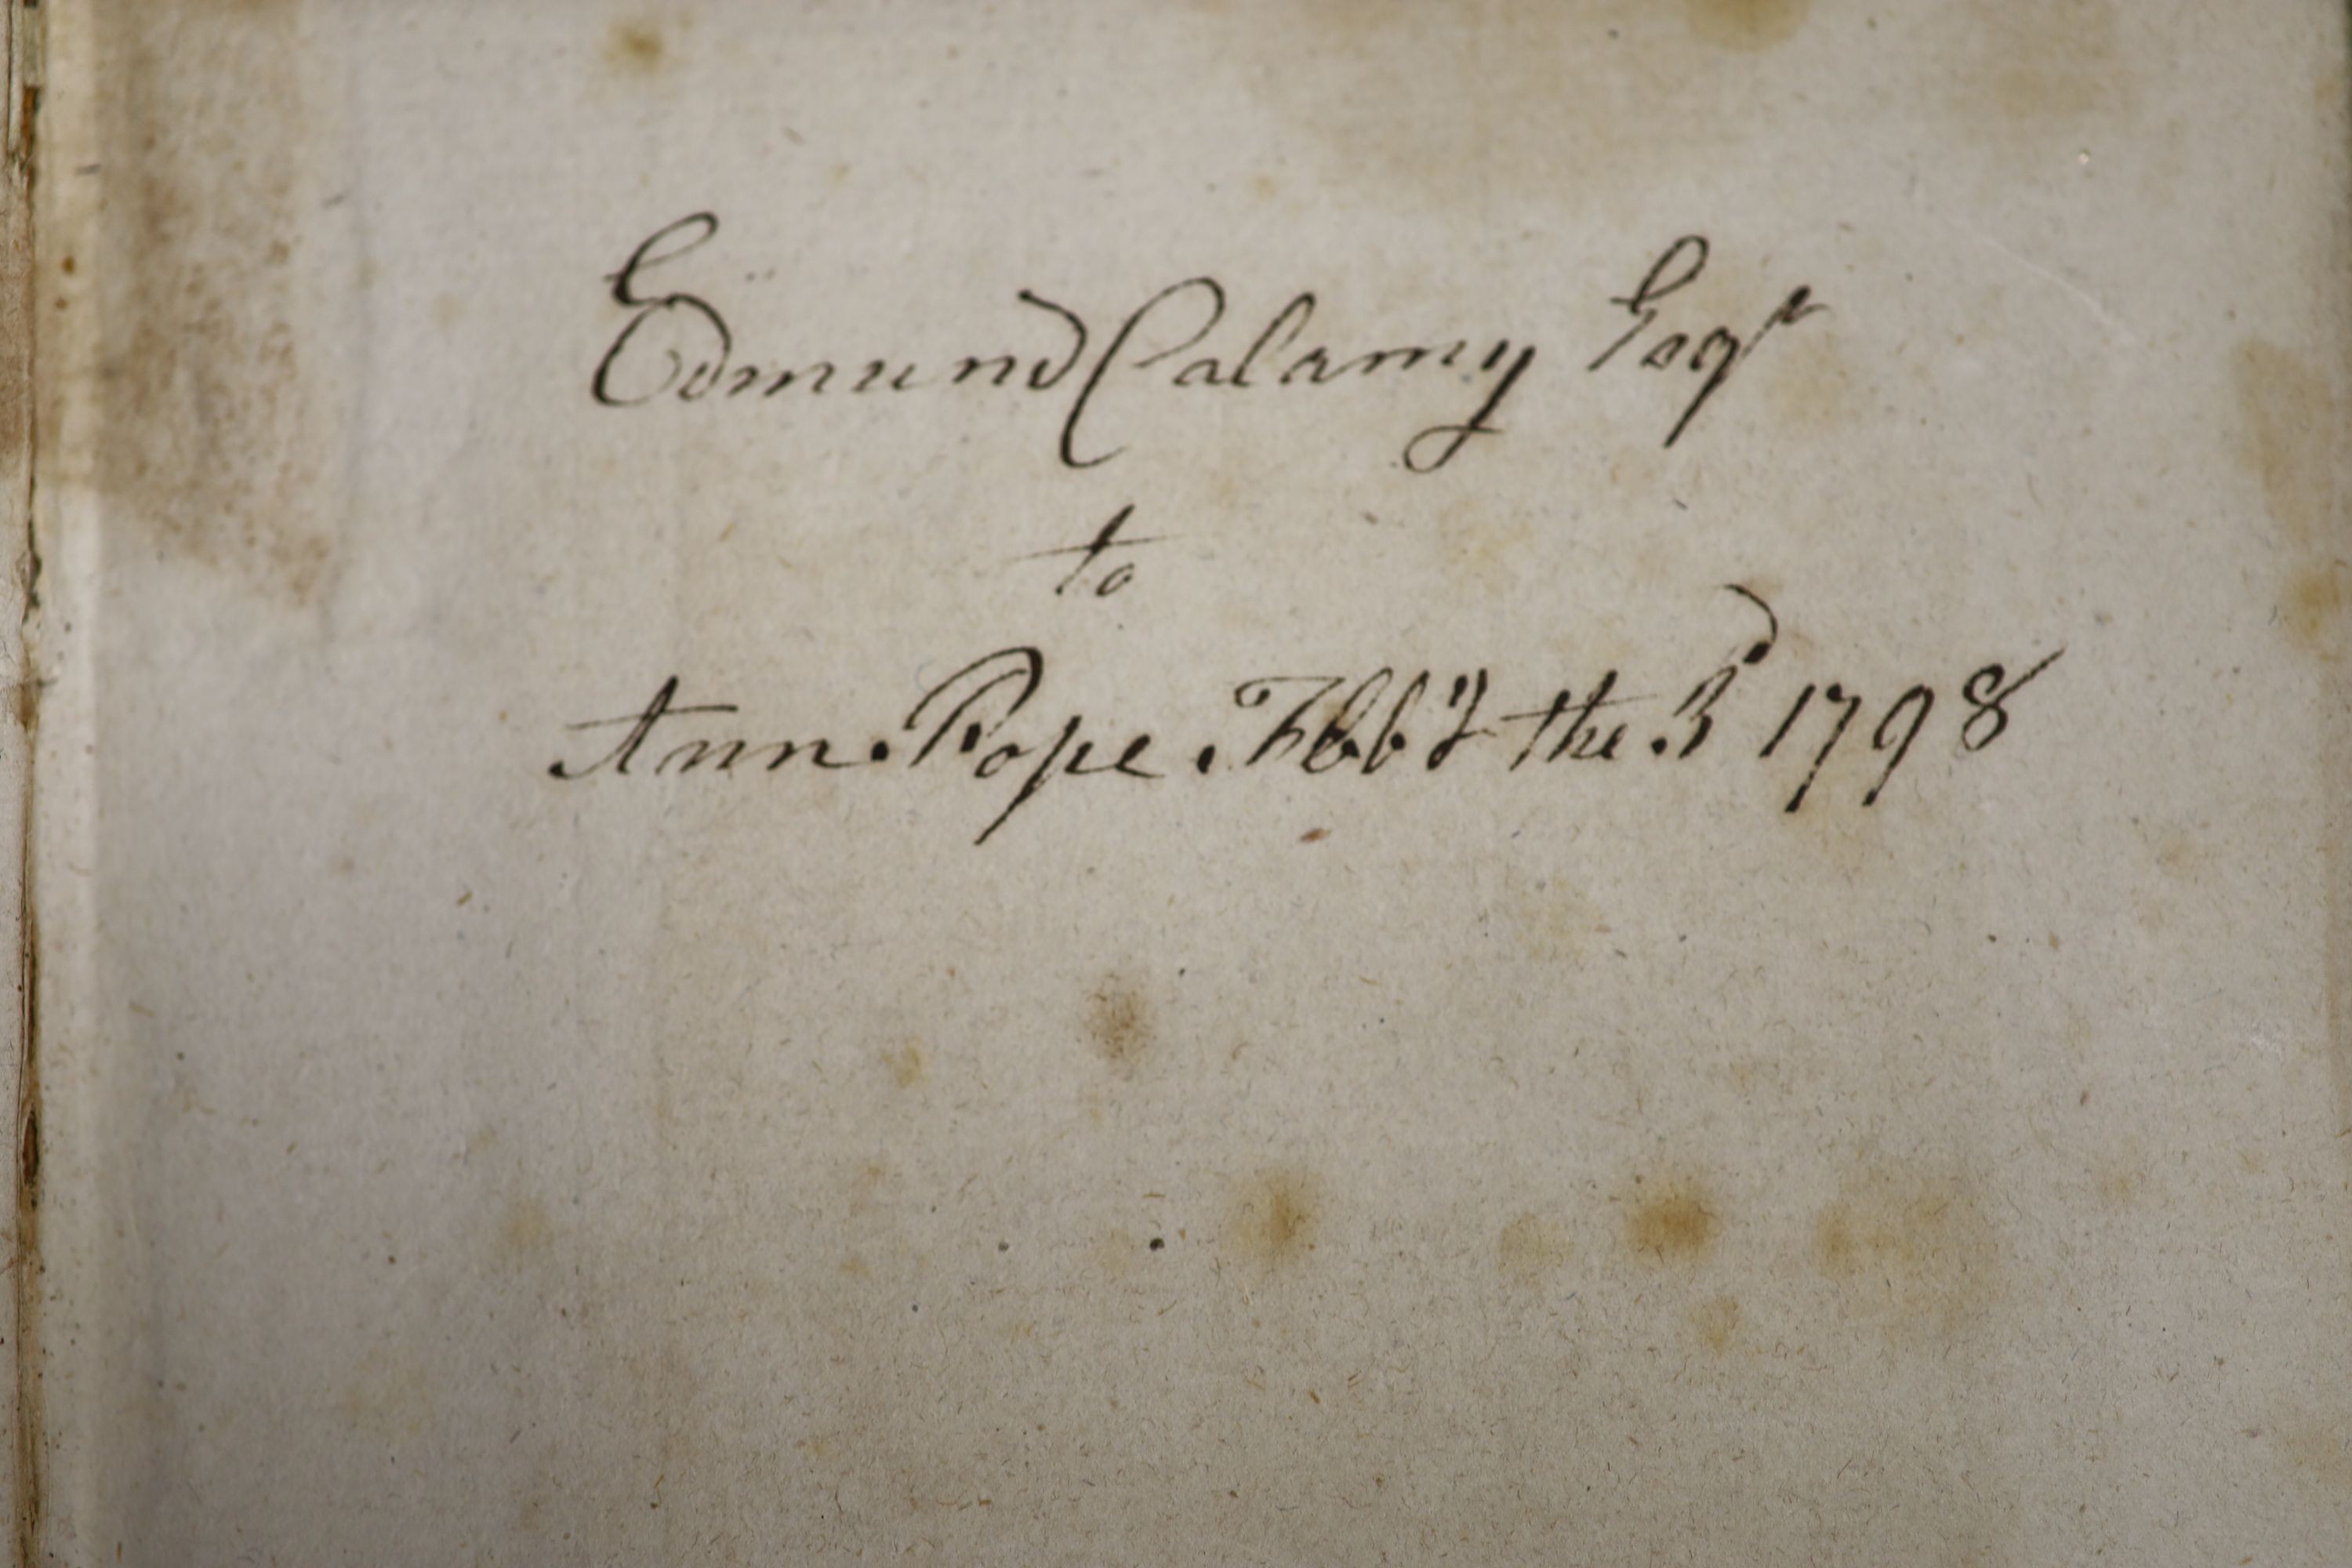 Edmund Calamy Esqr
to
Ann Pope Febby the 3d 1798